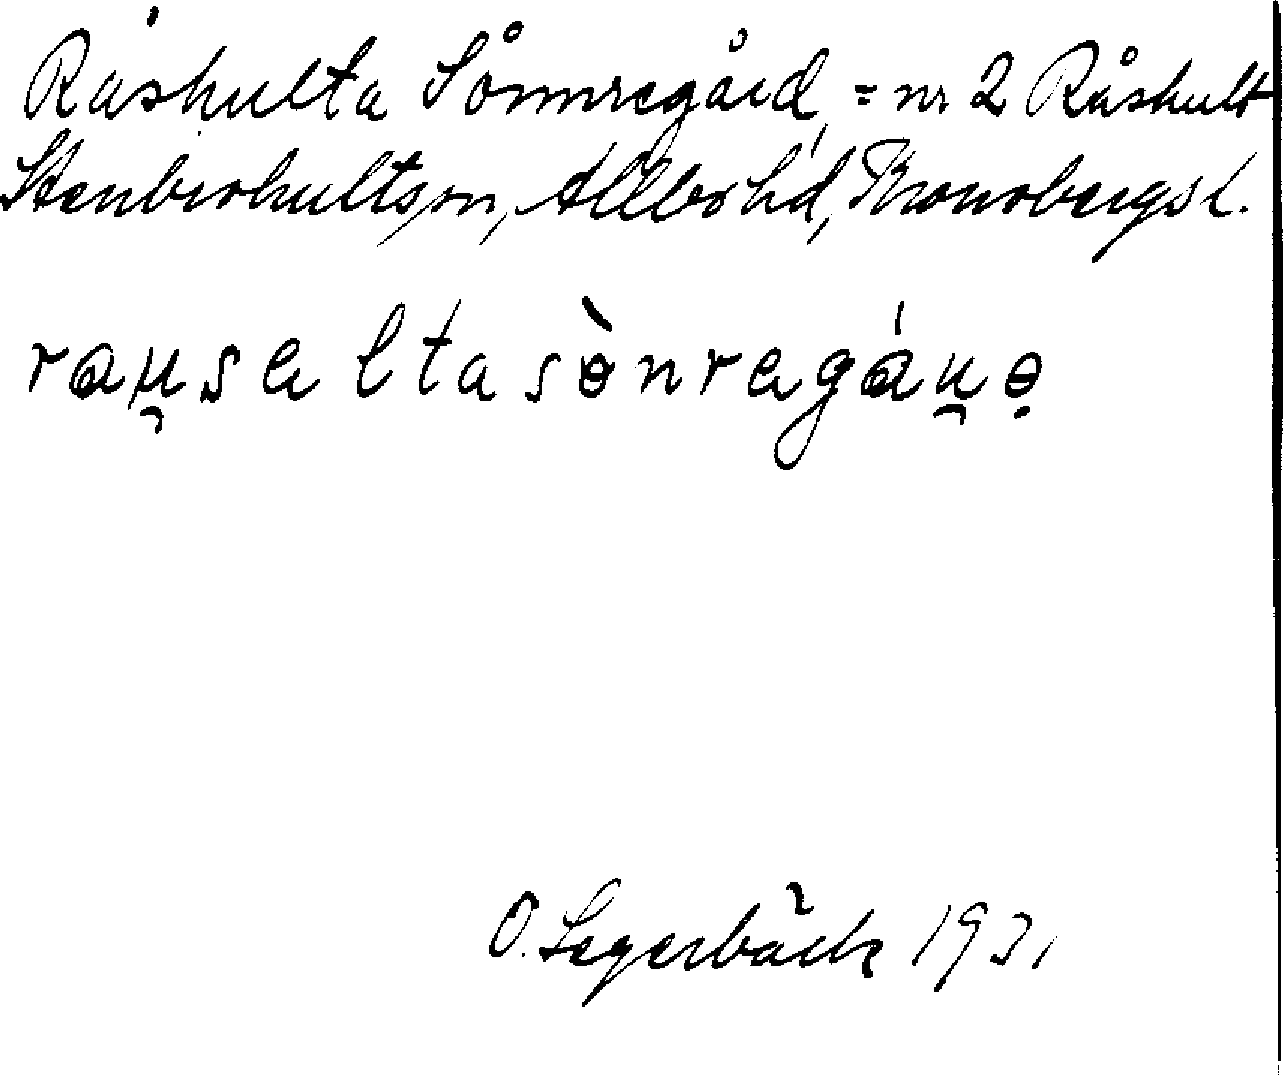 Råshulta Sönnregård, = nr 2 Råshult
Stenbrohultsn, Allbo hd, Kronobergs l.
rau̯sa ltasɵ̀nragáu̯ɵ̣
O. Segerbäck 1931